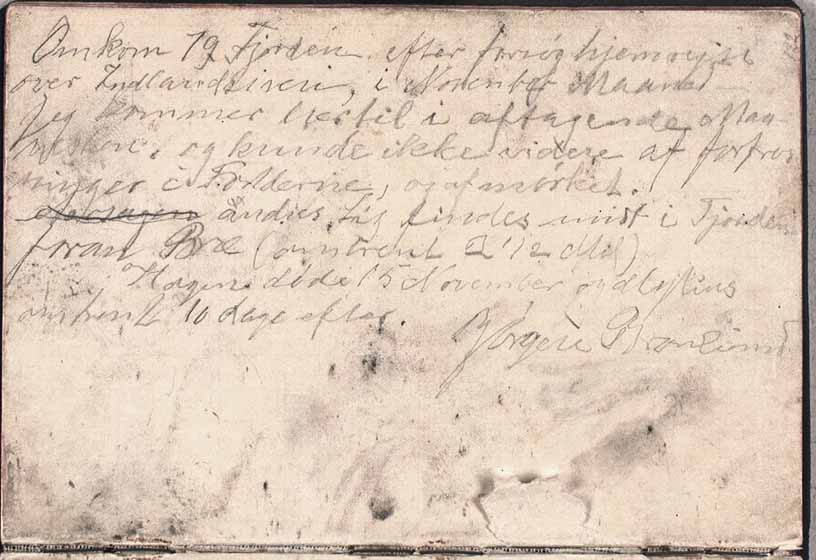 Omkom 79 Fjorden, efter forsøg hjemrejse
over Indlandsisen, i November Maaned
Jeg kommer hertil i aftagende Maa-
neskin, og kunde ikke videre af forfros-
ninger i Fødderne, og af mørket.
andres Lig findes midt i Fjorden
foran Bræ (omtrent 2 1/2 Mil)
Hagen døde 15 November og Mylius
omtrent 10 dage efter.
Jørgen Brønlund